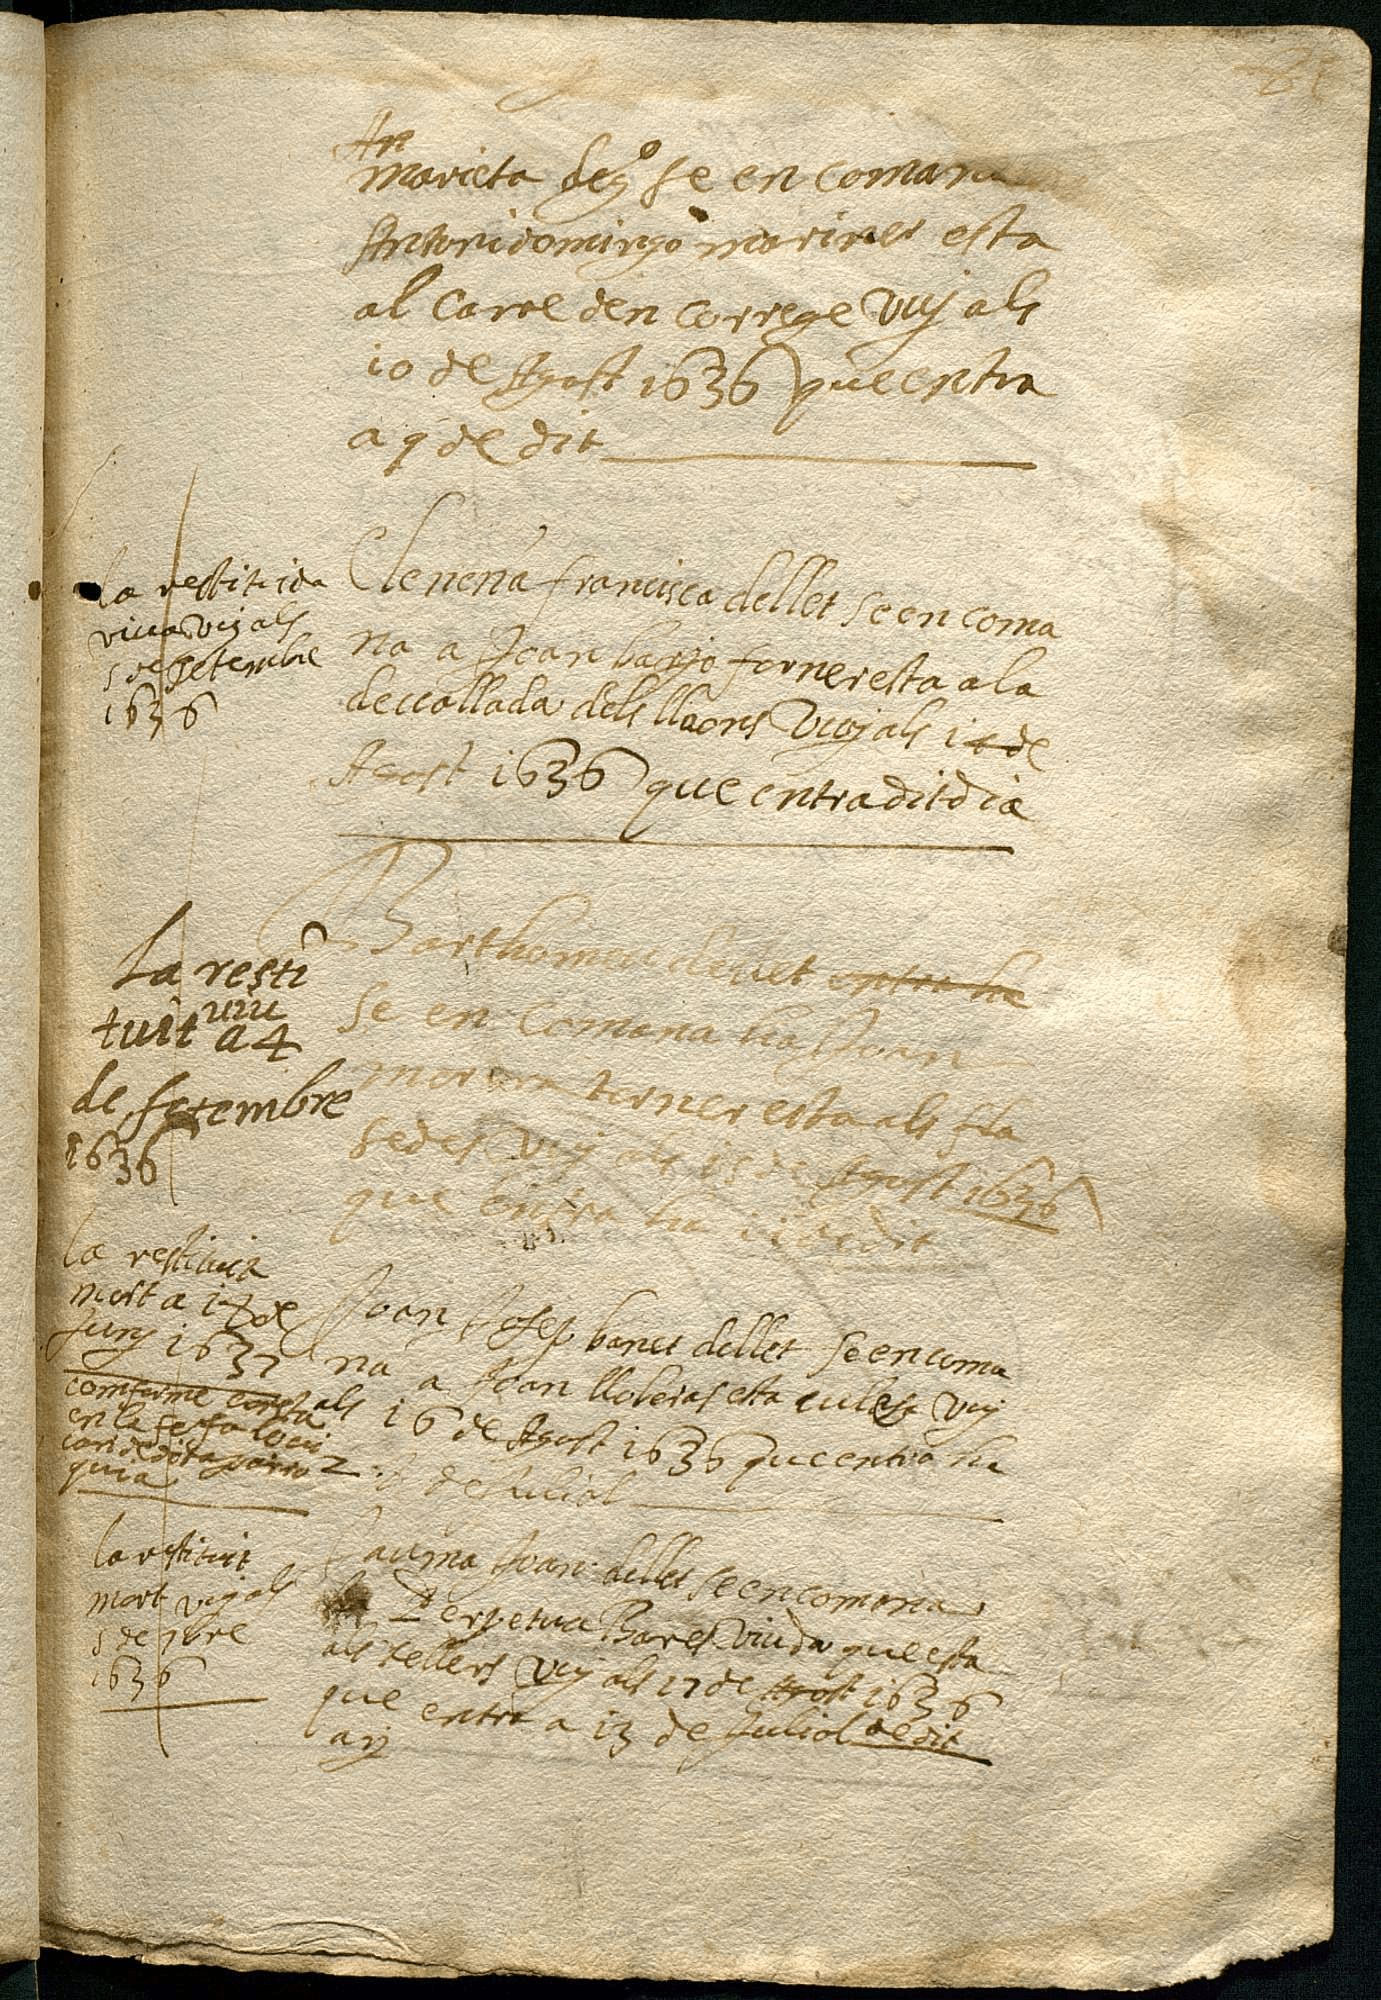 An
marieta deg° se en comana
Antoni domingo mariner esta
al carre den correge vuy als
10 de Agost 1636 que entra
a 9 de dit
la restituida
viua vuy als
5 de setembre
1636
Clenena francisca dellet se en coma
na a Joan barjo forner esta a la
decollada dels lleons vuy als 14 de
Agost 1636 que entra dit dia
La resti
tuit viu a 4
de setembre
1636
Barthomeu dellet entra ha
se en comana ha Joan
morera torner esta als fla
seders vuy als 15 de Agost 1636
que entra ha 11 de dit
la restituit
mort a 17 de
Juny 1637
comforme consta
en la
de dita parro
quia
Joan Josep banet dellet se en coma
na a Joan lloberas esta vuy
als 16 de Agost 1636 que entra ha
2 de Juliol
la restituit
mort vuy als
5 de 7bre
1636
Jauma Joan dellet se en comana
Perpetua Bares viuda que esta
als tellers vuy als 17 de Agost 1636
que entra a 13 de Juliol de dit
ay